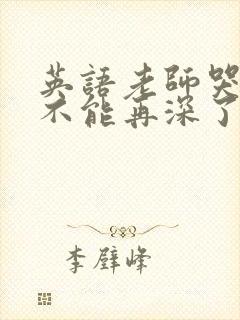 英語老師哭
不能再深了
李璧峰